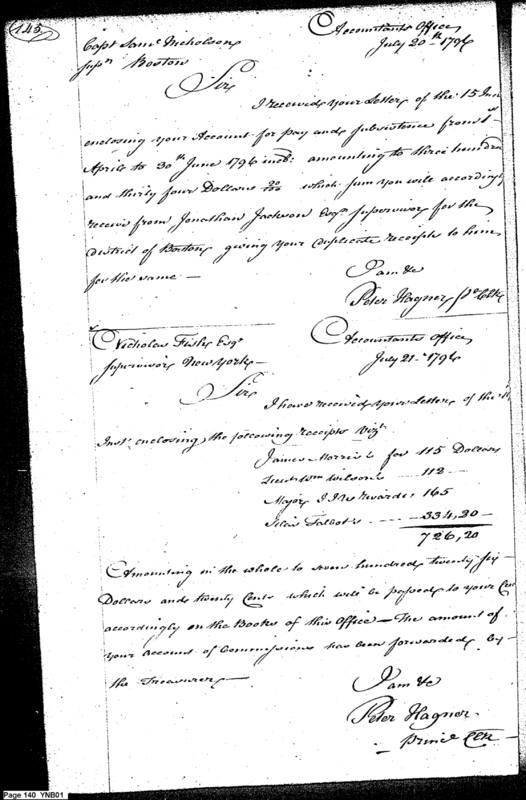 145
Accountants Office
July 20th 1796
Capt Saml Nicholson
Boston
Sir
I received your Letter of the 15 Inst
enclosing your Account for pay and subsistence from 1st
April to 30th June 1796 amounting to three hundred
and thirty four Dollars 20/100 which sum you will accordingly
receive from Jonathan Jackson Esqr Supervisor for the
district of Boston giving your duplicate receipts to him
for the same —
I am &c
Peter Hagner
Nicholas Fish Esqr
Supervisor New York —
Accountants Office
July 21st 1796
Sir
I have received your Letter of the
Inst enclosing the following receipts Vizt
James Morris's for 115 Dollars
Lieut Wm Wilson's — 112 —
Major 165
Silas Talbot's — 334,20 —
726,20
Amounting in the whole to seven hundred twenty six
Dollars and twenty Cents which will be passed to your Cr
accordingly on the Books of this Office — The amount of
your account of Commissions has been forwarded by
the Treasurer —
I am &c
Peter Hagner
Princl Clk
Page 140 YNB01